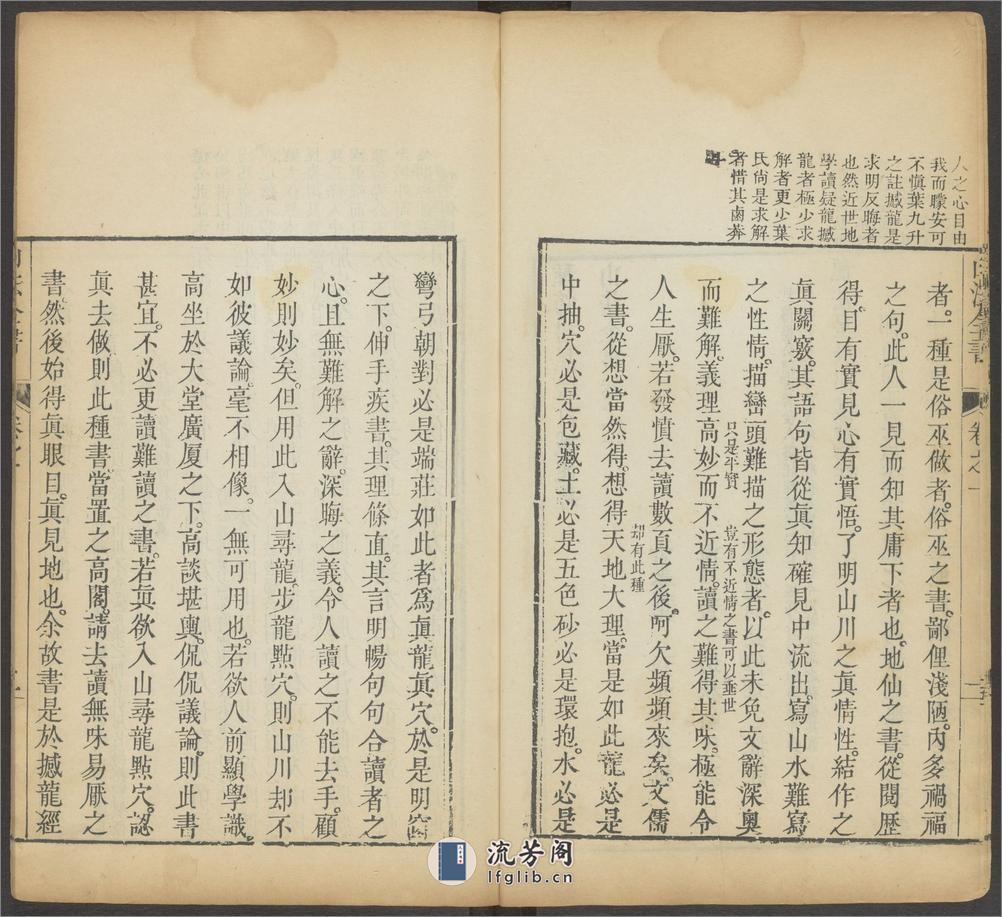 人之心目由
我而矇安可
不慎葉九升
之註撼龍是
求明反晦者
也然近世地
學讀疑龍撼
龍者極少求
解者更少葉
氏尚是求解
者惜其鹵莽
卷之一
者。一種是俗巫做者。俗巫之書。鄙俚淺陋。內多禍福
之句。此人一見而知其庸下者也。地仙之書。從閱歷
得。目有實見。心有實悟。了明山川之眞情性。結作之
眞關竅。其語句皆從眞知確見中流出。寫山水難寫
之性情。描巒頭難描之形態者。以此未免文辭深奧
只是平實
豈有不近情之書可以垂世
而難解。義理高妙而不近情。讀之難得其味。極能令
人生厭。若發憤去讀數頁之後。呵欠頻頻來矣。文儒
却有此種
之書。從想當然得。想得天地大理。當是如此。龍必是
中抽。穴必是包藏。土必是五色。砂必是環抱。水必是
彎弓。朝對必是端莊。如此者爲眞龍眞穴。於是明窗
之下。伸手疾書。其理條直。其言明暢。句句合讀者之
心。且無難解之辭。深晦之義。令人讀之不能去手。顧
妙則妙矣。但用此入山尋龍。步龍點穴。則山川却不
如彼議論。毫不相像。一無可用也。若欲人前顯學識。
高坐於大堂廣厦之下。高談堪輿。侃侃議論。則此書
甚宜。不必更讀難讀之書。若眞欲入山尋龍點穴。認
眞去做。則此種書當置之高閣。請去讀無味易厭之
書。然後始得眞眼目。眞見地也。余故書是於撼龍經
流芳阁
lfglib.cn